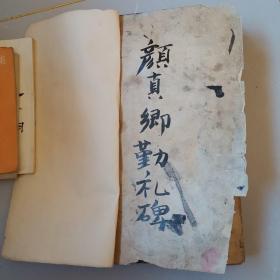 顔真卿勤礼碑